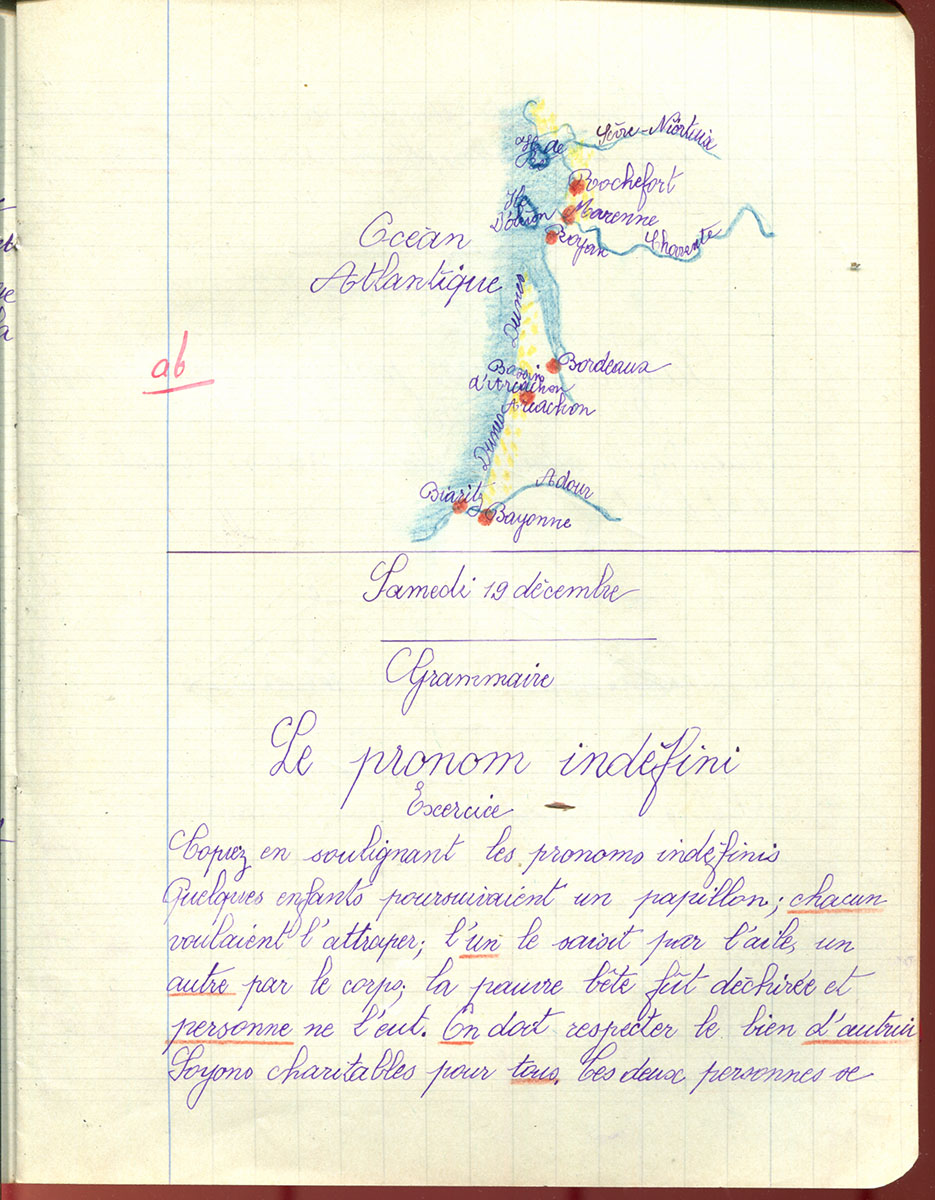 Sèvre-Niortaix
Ile de
Ré
Rochefort
Ile
D'oléron
Marenne
Royan
Charente
Océan
Atlantique
Dunes
ab
Bordeaux
Bassin
d'Arcachon
Arcachon
Dunes
Biaritz
Adour
Bayonne
Samedi 19 décembre
Grammaire
Le pronom indéfini
Exercice
Copiez en soulignant les pronoms indéfinis
Quelques enfants poursuivaient un papillon; chacun
voulaient l'attraper; l'un le saisit par l'aile, un
autre par le corps; la pauvre bête fût déchirée et
personne ne l'eut. On doit respecter le bien d'autrui
Soyons charitables pour tous. Ces deux personnes se